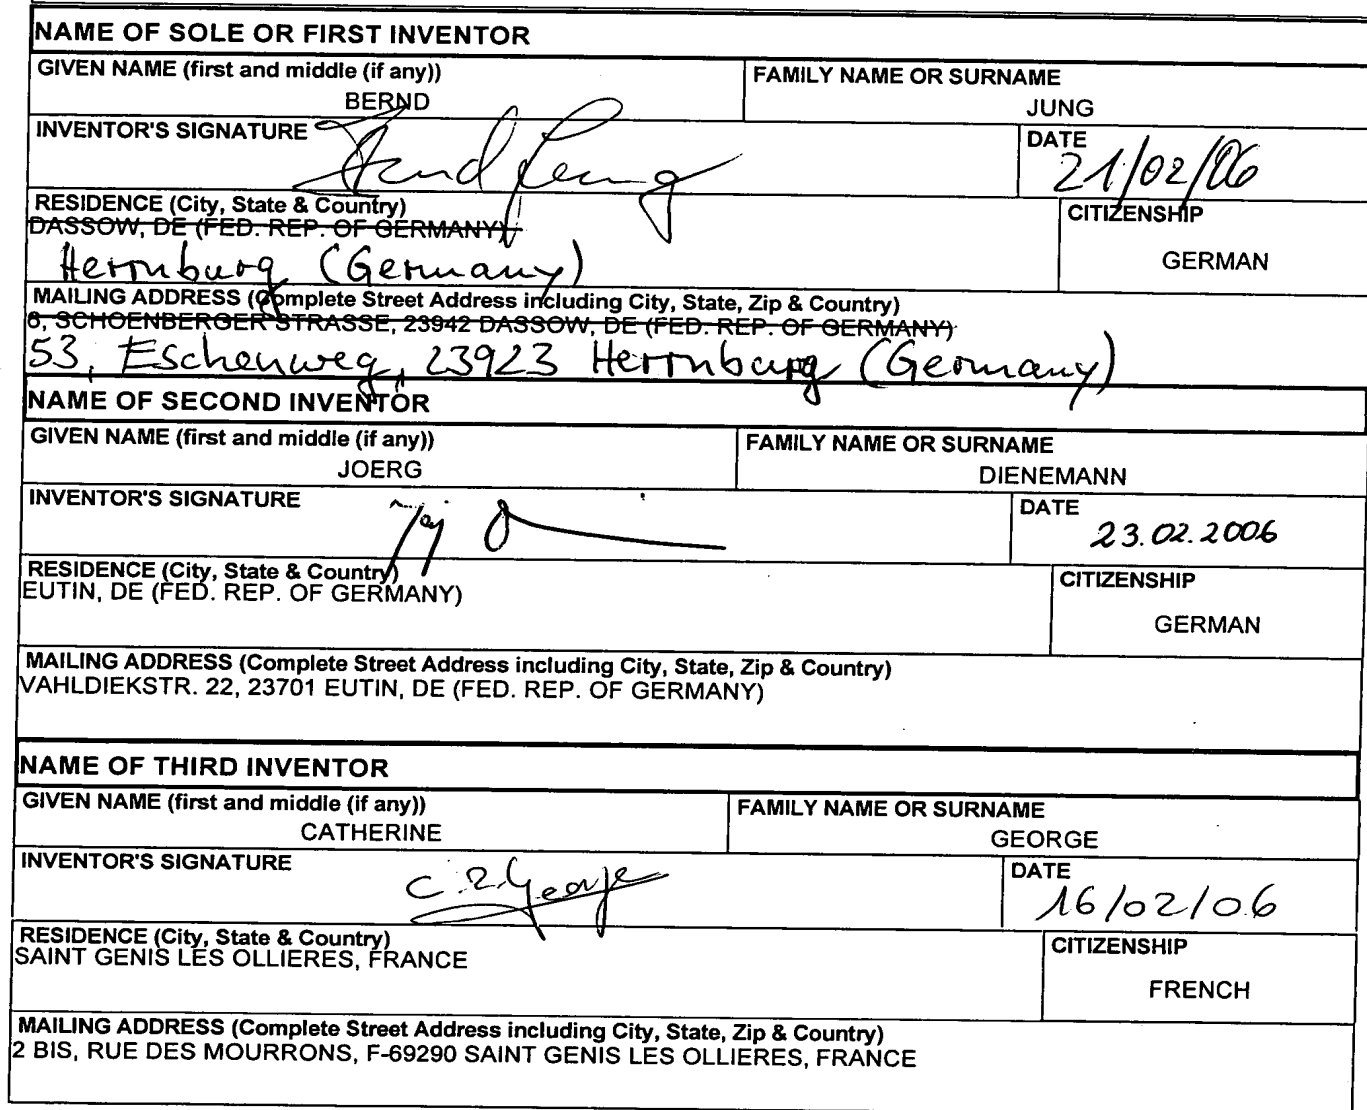 NAME OF SOLE OR FIRST INVENTOR
GIVEN NAME (first and middle (if any)) FAMILY NAME OR SURNAME
BERND JUNG
INVENTOR'S SIGNATURE DATE
21/02/06
RESIDENCE (City, State & Country) CITIZENSHIP
DASSOW, DE (FED. REP. OF GERMANY)
Herrnburg (Germany) GERMAN
MAILING ADDRESS (Complete Street Address including City, State, Zip & Country)
6, SCHOENBERGER STRASSE, 23942 DASSOW, DE (FED. REP. OF GERMANY)
53, Eschenweg, 23923 Herrnburg (Germany)
NAME OF SECOND INVENTOR
GIVEN NAME (first and middle (if any)) FAMILY NAME OR SURNAME
JOERG DIENEMANN
INVENTOR'S SIGNATURE DATE
23.02.2006
RESIDENCE (City, State & Country) CITIZENSHIP
EUTIN, DE (FED. REP. OF GERMANY)
GERMAN
MAILING ADDRESS (Complete Street Address including City, State, Zip & Country)
VAHLDIEKSTR. 22, 23701 EUTIN, DE (FED. REP. OF GERMANY)
NAME OF THIRD INVENTOR
GIVEN NAME (first and middle (if any)) FAMILY NAME OR SURNAME
CATHERINE GEORGE
INVENTOR'S SIGNATURE DATE
George 16/02/06
RESIDENCE (City, State & Country) CITIZENSHIP
SAINT GENIS LES OLLIERES, FRANCE
FRENCH
MAILING ADDRESS (Complete Street Address including City, State, Zip & Country)
2 BIS, RUE DES MOURRONS, F-69290 SAINT GENIS LES OLLIERES, FRANCE